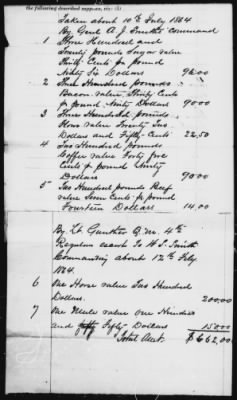 the following described supplies, viz: (5)
Taken about 10th July 1864
By Genl A. J. Smiths Command
1 Three Hundred and
Twenty pounds Sugar value
Thirty Cents pr pound
Ninty Six Dollars 96.00
2 Three Hundred pounds
Bacon value Thirty Cents
pr pound Ninty Dollars 90.00
3 Three Hundred pounds
Flour value Twenty two
Dollars and Fifty Cents 22.50
4 Two Hundred pounds
Coffee value Forty five
Cents pr pound Ninty
Dollars 90.00
5 Two Hundred pounds Beef
value Seven Cents pr pound
Fourteen Dollars 14.00
By Lt Q.M. 4th
Regulars escort to
Commanding about 12th July
1864.
6 One Horse value Two Hundred
Dollars. 200.00
7 One Mule value One Hundred
and fifty Fifty Dollars 150.00
Total Amt. $662.00